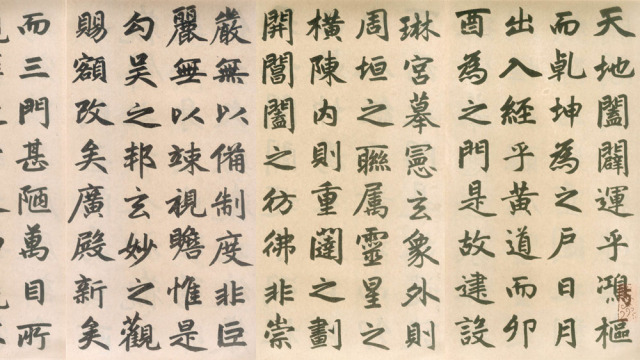 天地闔闢運乎鴻樞
而乹坤為之戶日月
出入經乎黃道而卯
酉為之門是故建設
琳宮摹憲玄象外則
周垣之聯属靈星之
橫陳内則重闥之劃
開閶闔之彷彿非崇
嚴無以備制度非巨
麗無以竦視瞻惟是
勾吴之邦玄妙之觀
賜額改矣廣殿新矣
而三門甚陋萬目所